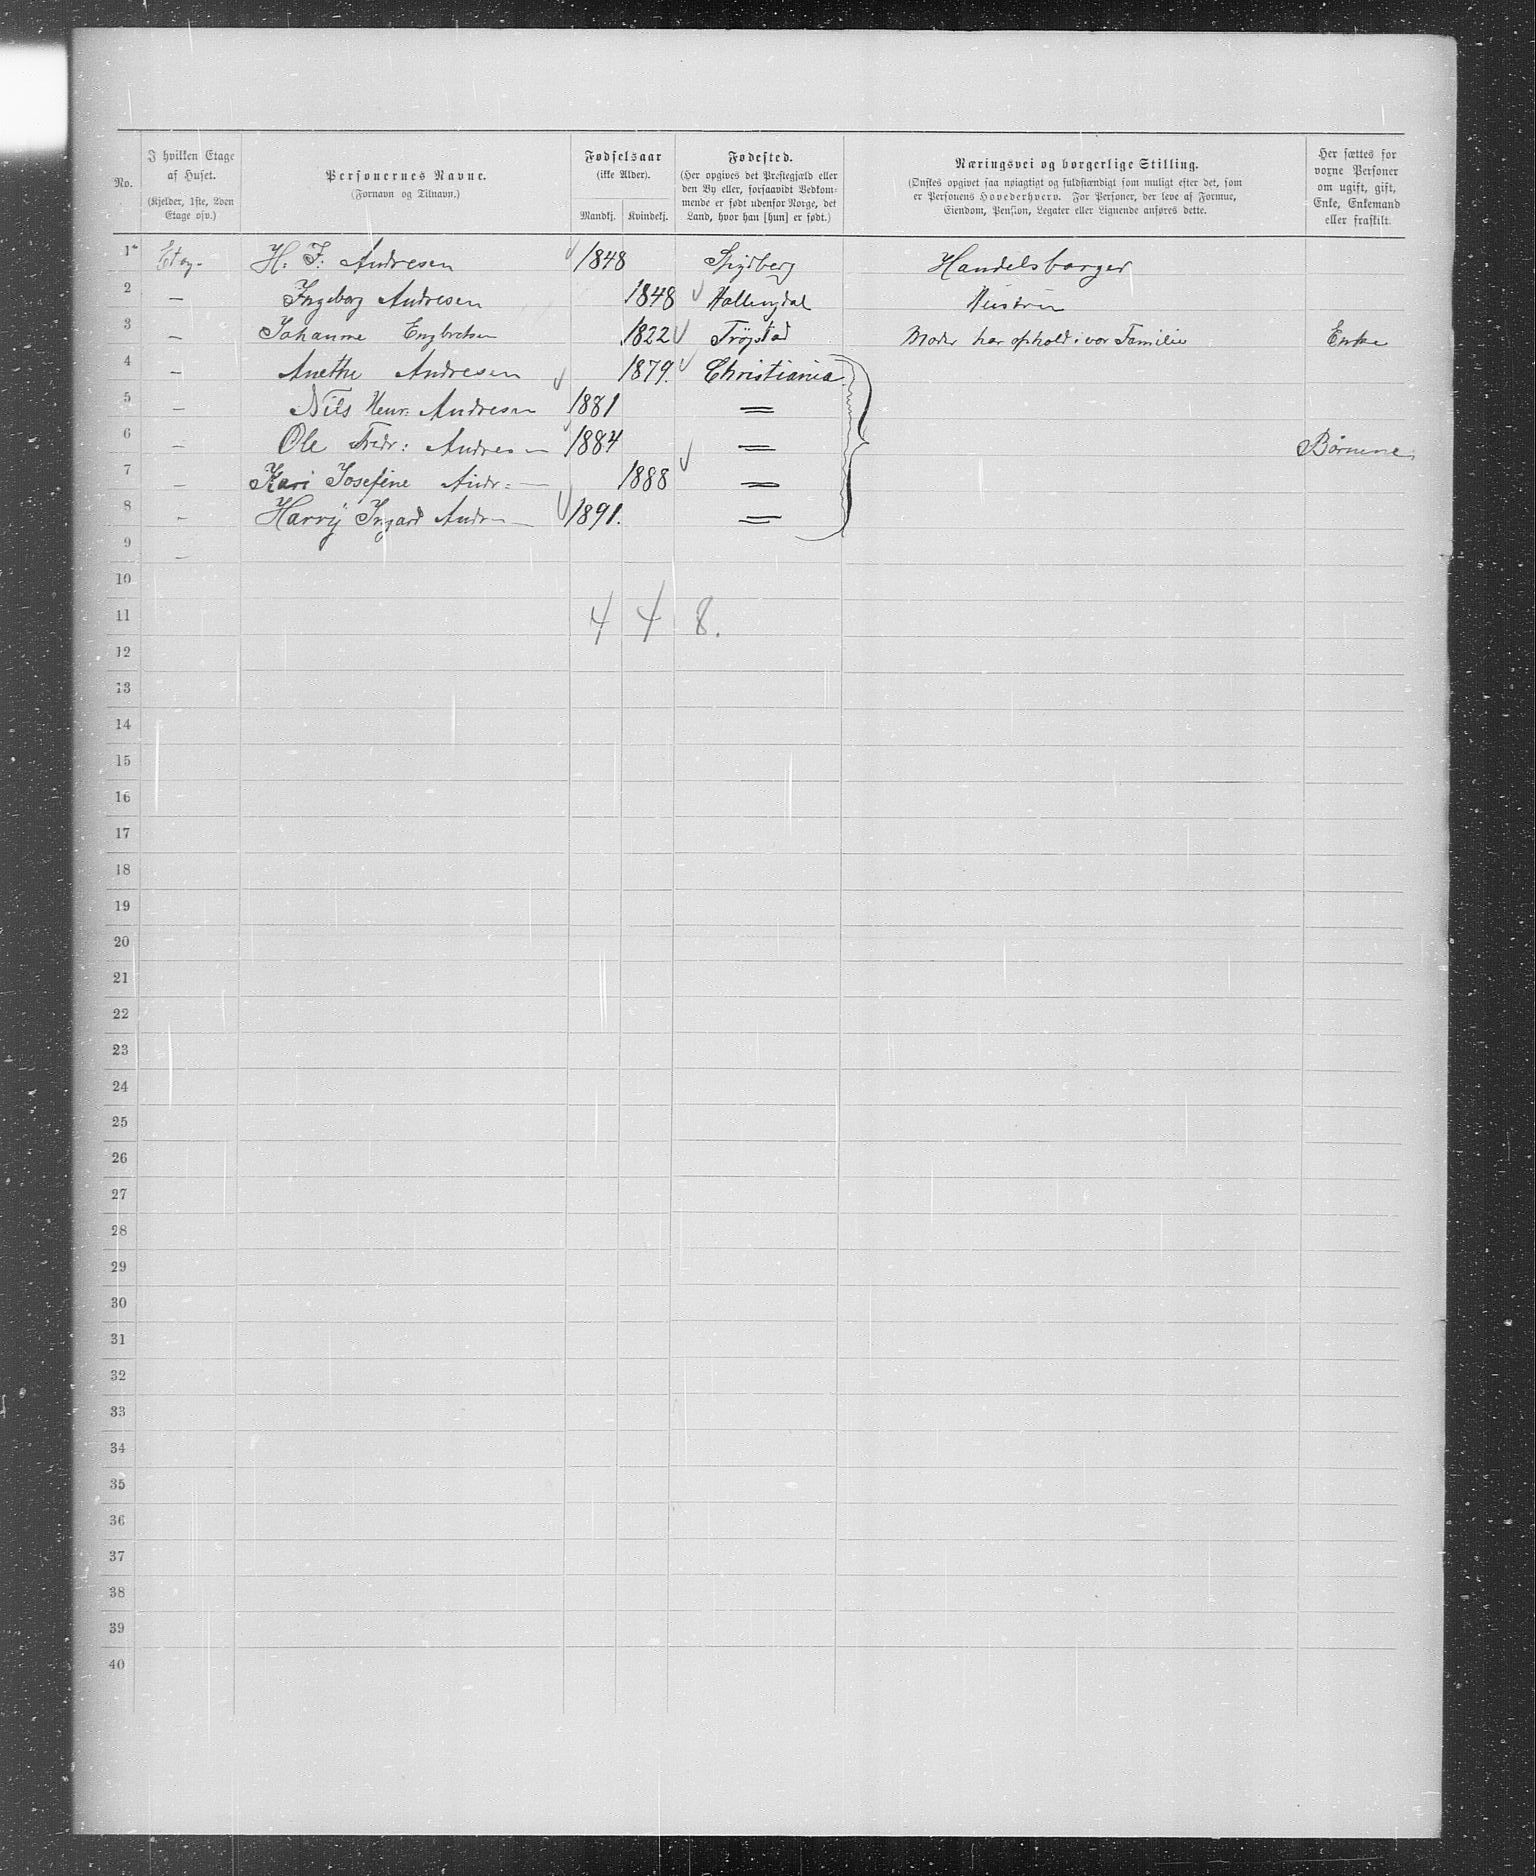 No. I hvilken Etage af Huset. (Kjelder, 1ste, 2den Etage osv.) Personernes Navne. (Fornavn og Tilnavn.) Fødselsaar (ikke Alder). Mandkj. Kvindekj. Fødested. (Her opgives det Præstegjæld eller den By eller, forsaavidt Vedkommende er født udenfor Norge, det Land, hvor han [hun] er født.) Næringsvei og borgerlige Stilling. (Ønskes opgivet saa nøiagtigt og fuldstændigt som muligt efter det, som er Personens Hovederhverv. For Personer, der leve af Formue, Eiendom, Pension, Legater eller Lignende anføres dette. Her sættes for voxne Personer om ugift, gift, Enke, Enkemand eller fraskilt.
1 Etag. H. F. Andresen 1848 Spydberg Handelsborger
2 — Ingeborg Andresen 1848 Hallingdal Hustru
3 — Johanne Engbretsen 1822 Trøgstad Moder har ophold i vor Familie Enke
4 — Anethe Andresen 1879. Christiania.
5 — Nils Henr: Andresen 1881 =
6 — Ole Fredr: Andresen 1884 = Børnene
7 — Kari Josefine Andr: — 1888 =
8 - Harry Ingard Andr — 1891. =
9 —
10
11 4 4 8.
12
13
14
15
16
17
18
19
20
21
22
23
24
25
26
27
28
29
30
31
32
33
34
35
36
37
38
39
40